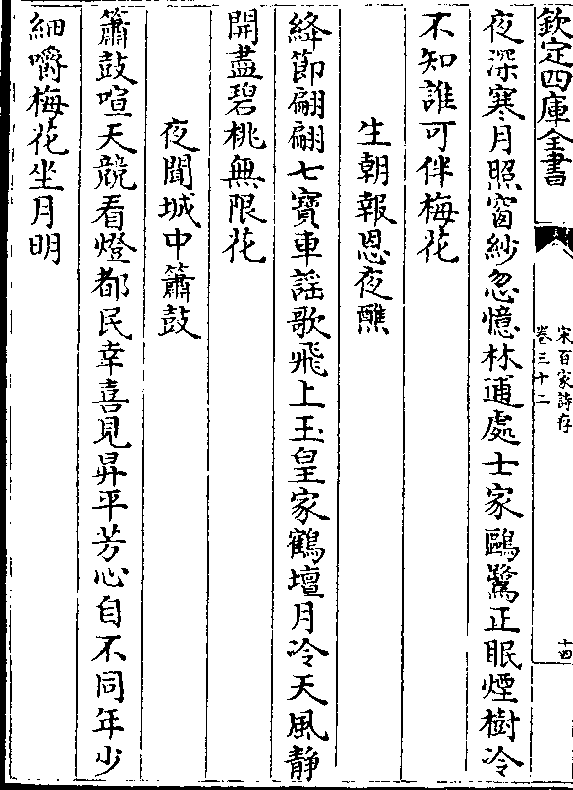 欽定四庫全書
宋百家詩存
卷三十二
十四
夜深寒月照窗紗忽憶林逋處士家鷗鷺正眠煙樹冷
不知誰可伴梅花
生朝報恩夜醮
絳節翩翩七寶車謡歌飛上玉皇家鶴壇月冷天風静
開盡碧桃無限花
夜聞城中簫鼓
簫鼓喧天競看燈都民幸喜見昇平芳心自不同年少
細嚼梅花坐月明